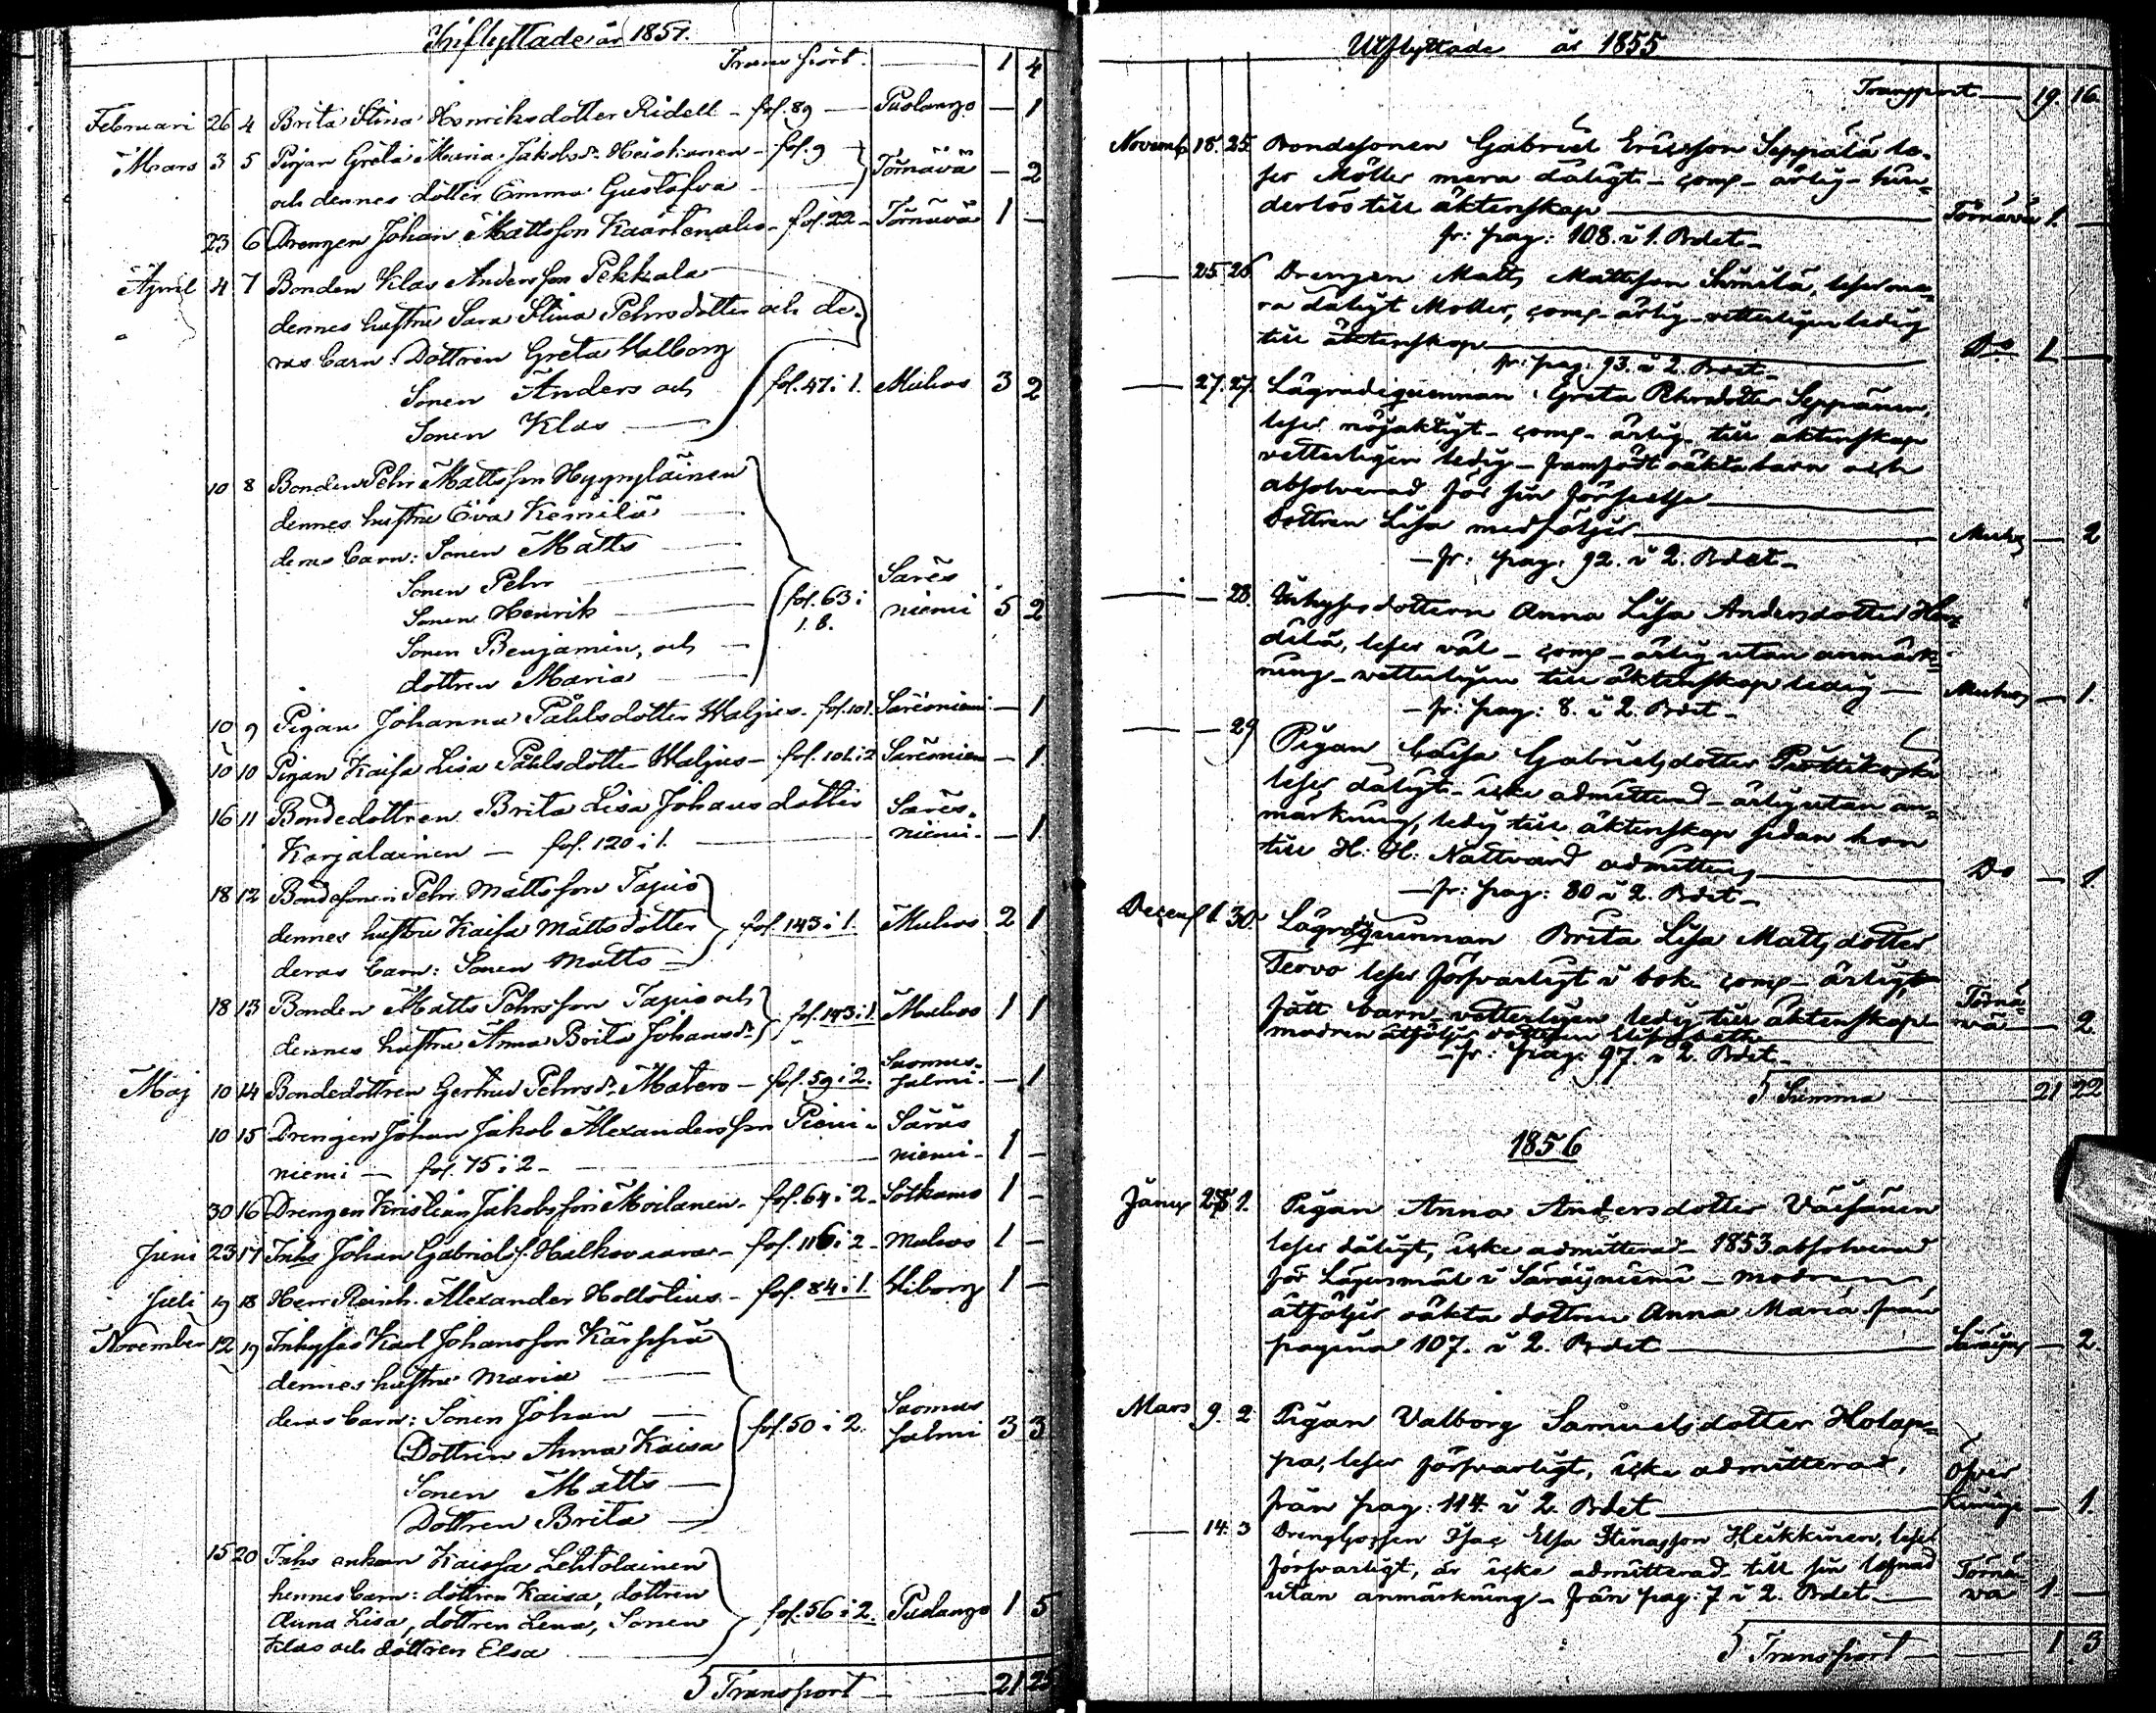 Inflyttade år 1857.
Transport. 1 4
Februari 26 4 Brita Stina Henriksdotter Ridell - fol. 89 - Puolango - 1
Mars 3 5 Pigan Greta Maria Jakobsdr. Heiskanen - fol. 9 -
och dennes dotter Emma Gustafva Törnävä - 2
23 6 Drengen Johan Mattsson Kaartenaho - fol. 22 - Törnävä 1 -
April 4 7 Bonden Klas Andersson Pekkala
dennes hustru Sara Stina Pehrsdotter och de-
ras barn: Dottren Greta Walborg
Sonen Anders och fol. 47 i 1. Muhos 3 2
Sonen Klas
10 8 Bonden Pehr Mattsson Hyynyläinen
dennes hustru Eva Kemilä
deras barn: Sonen Matts
Sonen Pehr Säres
Sonen Henrik fol. 63 i niemi 5 2
Sonen Benjamin, och 1. B.
dottren Maria
10 9 Pigan Johanna Påhlsdotter Waljus - fol. 101. Säresniemi - 1
10 10 Pigan Kaisa Lisa Påhlsdotter Waljus - fol. 101 i 2 Säresniemi - 1
16 11 Bondedottren Brita Lisa Johansdotter Säres-
Karjalainen - fol. 120 i 1. niemi - 1
18 12 Bondesonen Pehr Mattsson Tapio
dennes hustru Kaisa Mattsdotter fol. 143 i 1. Muhos 2 1
deras barn: Sonen Matts
18 13 Bonden Matts Pehrsson Tapio och fol. 143 i 1. Muhos 1 1
dennes hustru Anna Brita Johansdr.
Maj 10 14 Bondedottren Gertrud Pehrsdr. Matero - fol. 59 i 2. Suomus-salmi - 1
10 15 Drengen Johan Jakob Alexandersson Pieni- Säräs
niemi - fol. 75 i 2 - niemi - 1 -
30 16 Drengen Kristian Jakobsson Moilanen - fol. 64 i 2 - Sotkamo 1 -
Juni 23 17 Inhs Johan Gabriels. Halkovaara - fol. 116 i 2 - Muhos 1 -
Juli 19 18 Herr Reinh. Alexander Hollotius - fol. 84 i 1. Wiborg 1 -
November 12 19 Inhyses Karl Johansson Kärppä
dennes hustru Maria
deras barn: Sonen Johan Suomus
Dottren Anna Kaisa fol. 50 i 2. salmi 3 3
Sonen Matts
Dottren Brita
15 20 Inhs enkan Kaisa Lehtolainen
hennes barn: dottren Kaisa, dottren
Anna Lisa, dottren Lena, Sonen fol. 56 i 2. Pudango 1 5
Klas och dottren Elsa
Transport 21 25
Utflyttade år 1855
Transport - 19 16.
Novemb 18. 25. Bondesonen Gabriel Ericsson Seppälä lä-
ser Möller mera dåligt - comp - ärlig - hin-
derlös till äktenskap Törnävä 1. -
fr: pag: 108. i 1. Bdet -
25. 26 Drengen Matts Mattsson Similä, läser me-
ra dåligt Möller, comp - ärlig - vetterligen ledig
till äktenskap Do 1 -
fr: pag. 93. i 2. Bdet -
27. 27. Lägradeqvinnan Greta Pehrsdotter Seppänen,
läser nöjaktigt - comp - ärlig - till äktenskap
vetterligen ledig - framfödt oäkta barn och
absolverad för sin förseelse
dottren Lisa medföljer Muhos - 2
- fr: pag: 92. i 2. Bdet -
- 28. Inhysesdottern Anna Lisa Andersdotter Här-
dilä, läser väl - comp - ärlig utan anmärk-
ning - vetterligen till äktenskap ledig - Muhos - 1.
- fr: pag: 8. i 2. Bdet -
- 29 Pigan Caisa Gabrielsdotter Pirttikoski
läser dåligt - icke admitterad - ärlig utan an-
märkning, ledig till äktenskap sedan hon
till H. H. Nattvard admitteras Do - 1.
- fr: pag: 80 i 2. Bdet -
Decemb 1. 30. Lägradqvinnan Brita Lisa Mattsdotter
Tervo läser försvarligt i bok - comp - ärligt
fått barn - vetterligen ledig till äktenskap Törnä-
modren åtföljer dottren Elisabeth vä - 2
- fr: pag: 97. i 2. Bdet -
Summa 21 22
1856
Janua 28 1. Pigan Anna Andersdotter Väisänen
läser dåligt, icke admitterad - 1853 absolverad
för Lägersmål i Säräisniemi - modren
åtföljer oäkta dottren Anna Maria från
pagina 107. i 2. Bdet Säräisn - 2.
Mars 9. 2 Pigan Valborg Samuelsdotter Holap-
pa, läser försvarligt, icke admitterad, Öfver
från pag: 114. i 2. Bdet Kiminge - 1.
- 14. 3 Drenggossen Isac Elsa Stinasson Heikkinen, läser
försvarligt, är icke admitterad till sin lefnad Törnä-
utan anmärkning - från pag: 7 i 2. Bdet - vä 1 -
Transport - 1 3